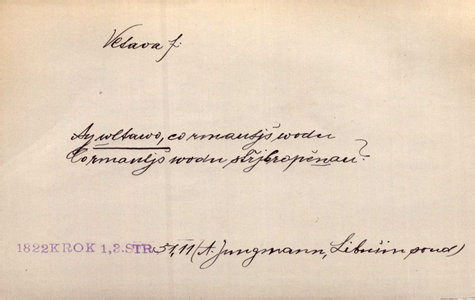 Vltava f.
Ay wltawo, co rmautjš wodu
Co rmautjš wodu střjbropěnau?
1822KROK 1,3.STR 51,11 (A. Jungmann, Libušin soud)